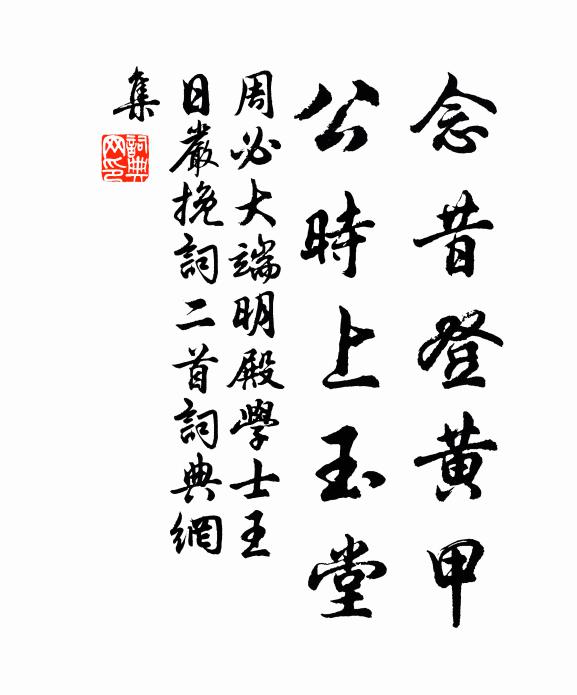 念昔登黄甲
公時上玉堂
周必大端明殿學士王
日嚴挽詞二首詞典網
集
詞典網印